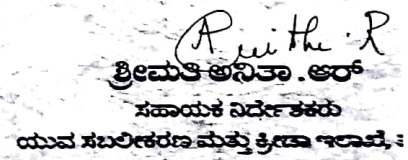 Anitha .R
ಶ್ರೀಮತಿ ಅನಿತಾ .ಆರ್
ಸಹಾಯಕ ನಿರ್ದೇಶಕರು
ಯುವ ಸಬಲೀಕರಣ ಮತ್ತು ಕ್ರೀಡಾ ಇಲಾಖೆ,